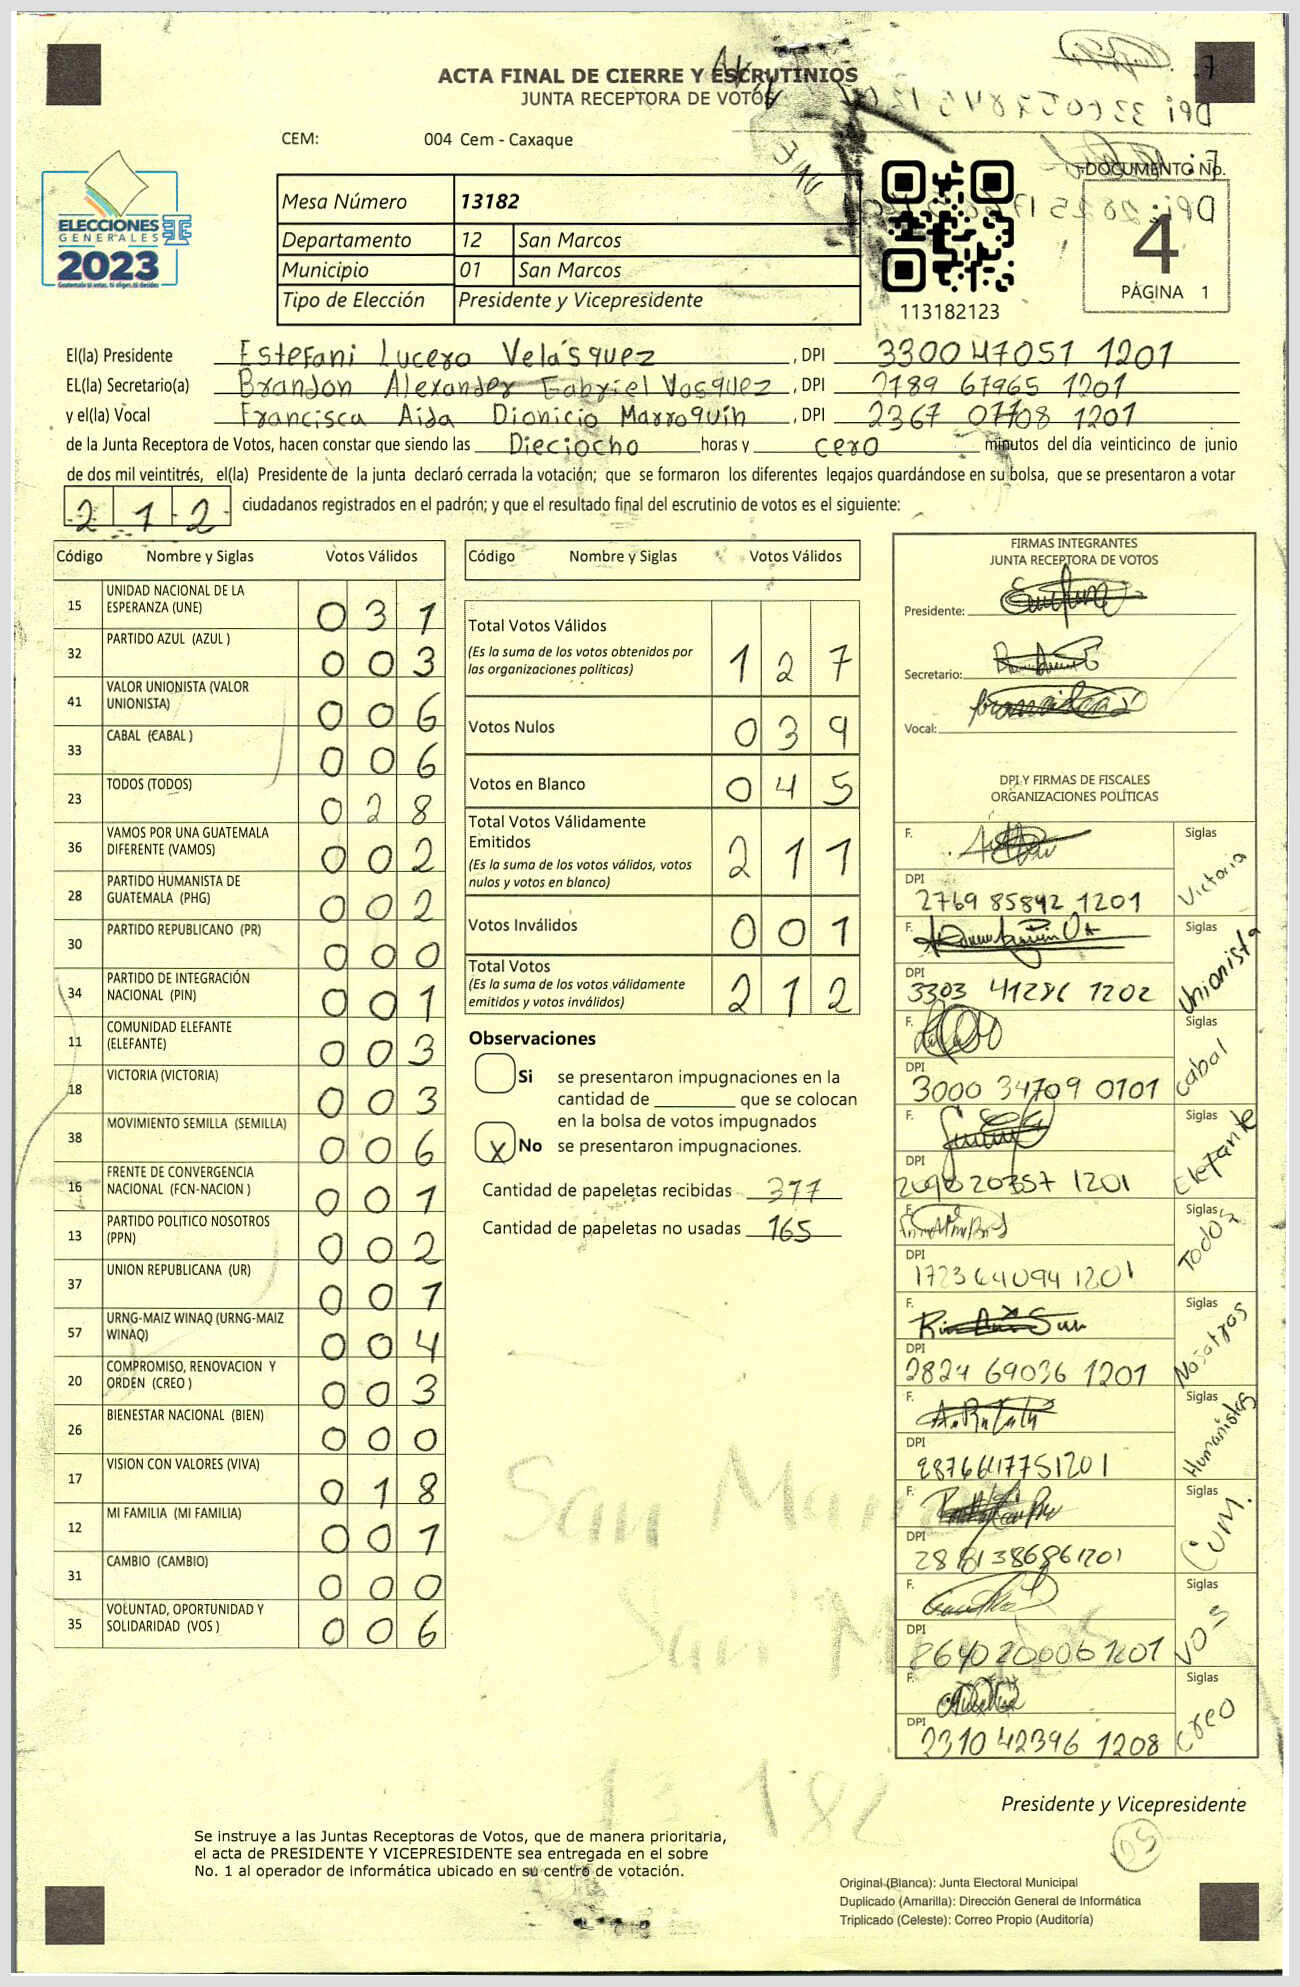 ACTA FINAL DE CIERRE Y ESCRUTINIOS
JUNTA RECEPTORA DE VOTOS
CEM: 004 Cem - Caxaque
ELECCIONES
GENERALES
2023
Guatemala tú votas, tú eliges, tú decides
Mesa Número 13182
Departamento 12 San Marcos
Municipio 01 San Marcos
Tipo de Elección Presidente y Vicepresidente
113182123
DOCUMENTO No.
4
PÁGINA 1
El(la) Presidente Estefani Lucero Velásquez, DPI 3300 47051 1201
EL(la) Secretario(a) Brandon Alexander Gabriel Vasquez, DPI 2189 67965 1201
y el(la) Vocal Francisca Aida Dionicio Marroquin, DPI 2367 07708 1201
de la Junta Receptora de Votos, hacen constar que siendo las Dieciocho horas y cero minutos del día veinticinco de junio
de dos mil veintitrés, el(la) Presidente de la junta declaró cerrada la votación; que se formaron los diferentes legajos guardándose en su bolsa, que se presentaron a votar
212 ciudadanos registrados en el padrón; y que el resultado final del escrutinio de votos es el siguiente:
Código Nombre y Siglas Votos Válidos
15 UNIDAD NACIONAL DE LA ESPERANZA (UNE) 031
32 PARTIDO AZUL (AZUL ) 003
41 VALOR UNIONISTA (VALOR UNIONISTA) 006
33 CABAL (CABAL ) 006
23 TODOS (TODOS) 028
36 VAMOS POR UNA GUATEMALA DIFERENTE (VAMOS) 002
28 PARTIDO HUMANISTA DE GUATEMALA (PHG) 002
30 PARTIDO REPUBLICANO (PR) 000
34 PARTIDO DE INTEGRACIÓN NACIONAL (PIN) 001
11 COMUNIDAD ELEFANTE (ELEFANTE) 003
18 VICTORIA (VICTORIA) 003
38 MOVIMIENTO SEMILLA (SEMILLA) 006
16 FRENTE DE CONVERGENCIA NACIONAL (FCN-NACION ) 001
13 PARTIDO POLITICO NOSOTROS (PPN) 002
37 UNION REPUBLICANA (UR) 001
57 URNG-MAIZ WINAQ (URNG-MAIZ WINAQ) 004
20 COMPROMISO, RENOVACION Y ORDEN (CREO ) 003
26 BIENESTAR NACIONAL (BIEN) 000
17 VISION CON VALORES (VIVA) 018
12 MI FAMILIA (MI FAMILIA) 001
31 CAMBIO (CAMBIO) 000
35 VOLUNTAD, OPORTUNIDAD Y SOLIDARIDAD (VOS ) 006
Código Nombre y Siglas Votos Válidos
Total Votos Válidos 127
(Es la suma de los votos obtenidos por
las organizaciones políticas)
Votos Nulos 039
Votos en Blanco 045
Total Votos Válidamente
Emitidos 211
(Es la suma de los votos válidos, votos
nulos y votos en blanco)
Votos Inválidos 001
Total Votos 212
(Es la suma de los votos válidamente
emitidos y votos inválidos)
Observaciones
Si se presentaron impugnaciones en la
cantidad de ________ que se colocan
en la bolsa de votos impugnados
X No se presentaron impugnaciones.
Cantidad de papeletas recibidas 377
Cantidad de papeletas no usadas 165
FIRMAS INTEGRANTES
JUNTA RECEPTORA DE VOTOS
Presidente:
Secretario:
Vocal:
DPI Y FIRMAS DE FISCALES
ORGANIZACIONES POLÍTICAS
F. Siglas Victoria
DPI 2769 85842 1201
F. Siglas Unionista
DPI 3303 41286 1202
F. Siglas Cabal
DPI 3000 34709 0101
F. Siglas Elefante
DPI 1201
F. Siglas Todos
DPI 1723 64094 1201
F. Siglas Nosotros
DPI 2824 69036 1201
F. Siglas Humanistas
DPI
F. Siglas
DPI
F. Siglas VOS
DPI
F. Siglas Creo
DPI 2310 42396 1208
San Marcos
San Marcos
13 182
Presidente y Vicepresidente
Se instruye a las Juntas Receptoras de Votos, que de manera prioritaria,
el acta de PRESIDENTE Y VICEPRESIDENTE sea entregada en el sobre
No. 1 al operador de informática ubicado en su centro de votación.
Original (Blanca): Junta Electoral Municipal
Duplicado (Amarilla): Dirección General de Informática
Triplicado (Celeste): Correo Propio (Auditoría)